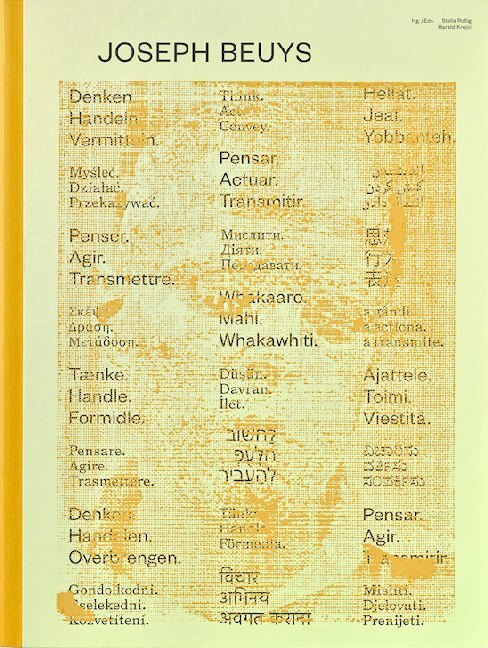 hg. /Eds. Stella Rollig
Harald Krejci
JOSEPH BEUYS
Denken
Handeln
Vermitteln.
Myśleć.
Działać.
Przekazywać.
Penser.
Agir.
Transmettre.
Δράση.
Μετάδοση.
Tænke.
Handle.
Formidle.
Pensare.
Agire
Trasmettere.
Denken
Handelen.
Overbrengen.
Gondolkodni.
Cselekedni.
Közvetíteni.
Think.
Act.
Convey.
Pensar.
Actuar.
Transmitir.
Мислити.
Діяти.
Передавати.
Whakaaro.
Mahi.
Whakawhiti.
Düşün.
Davran.
İlet.
לַחְשׁוֹב
להעביר
Tänk.
Handla.
Förmedla.
विचार
अभिनय
अवगत कराना
Jeal.
Yobbanteh.
思
行
表
a gândi.
a acționa.
a transmite.
Ajattele.
Toimi.
Viestitä.
Pensar.
Agir.
Transmitir.
Misliti.
Djelovati.
Prenijeti.